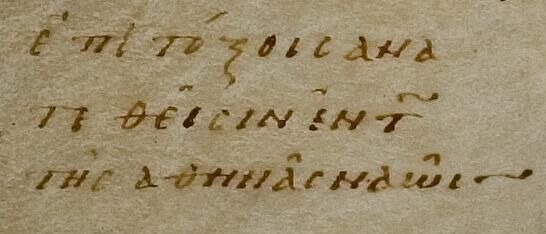 ἐπὶ τόξοις ἀνα
τεθεῖσιν ἐν τ͂
τῆς ἀθηνᾶς ναῶι